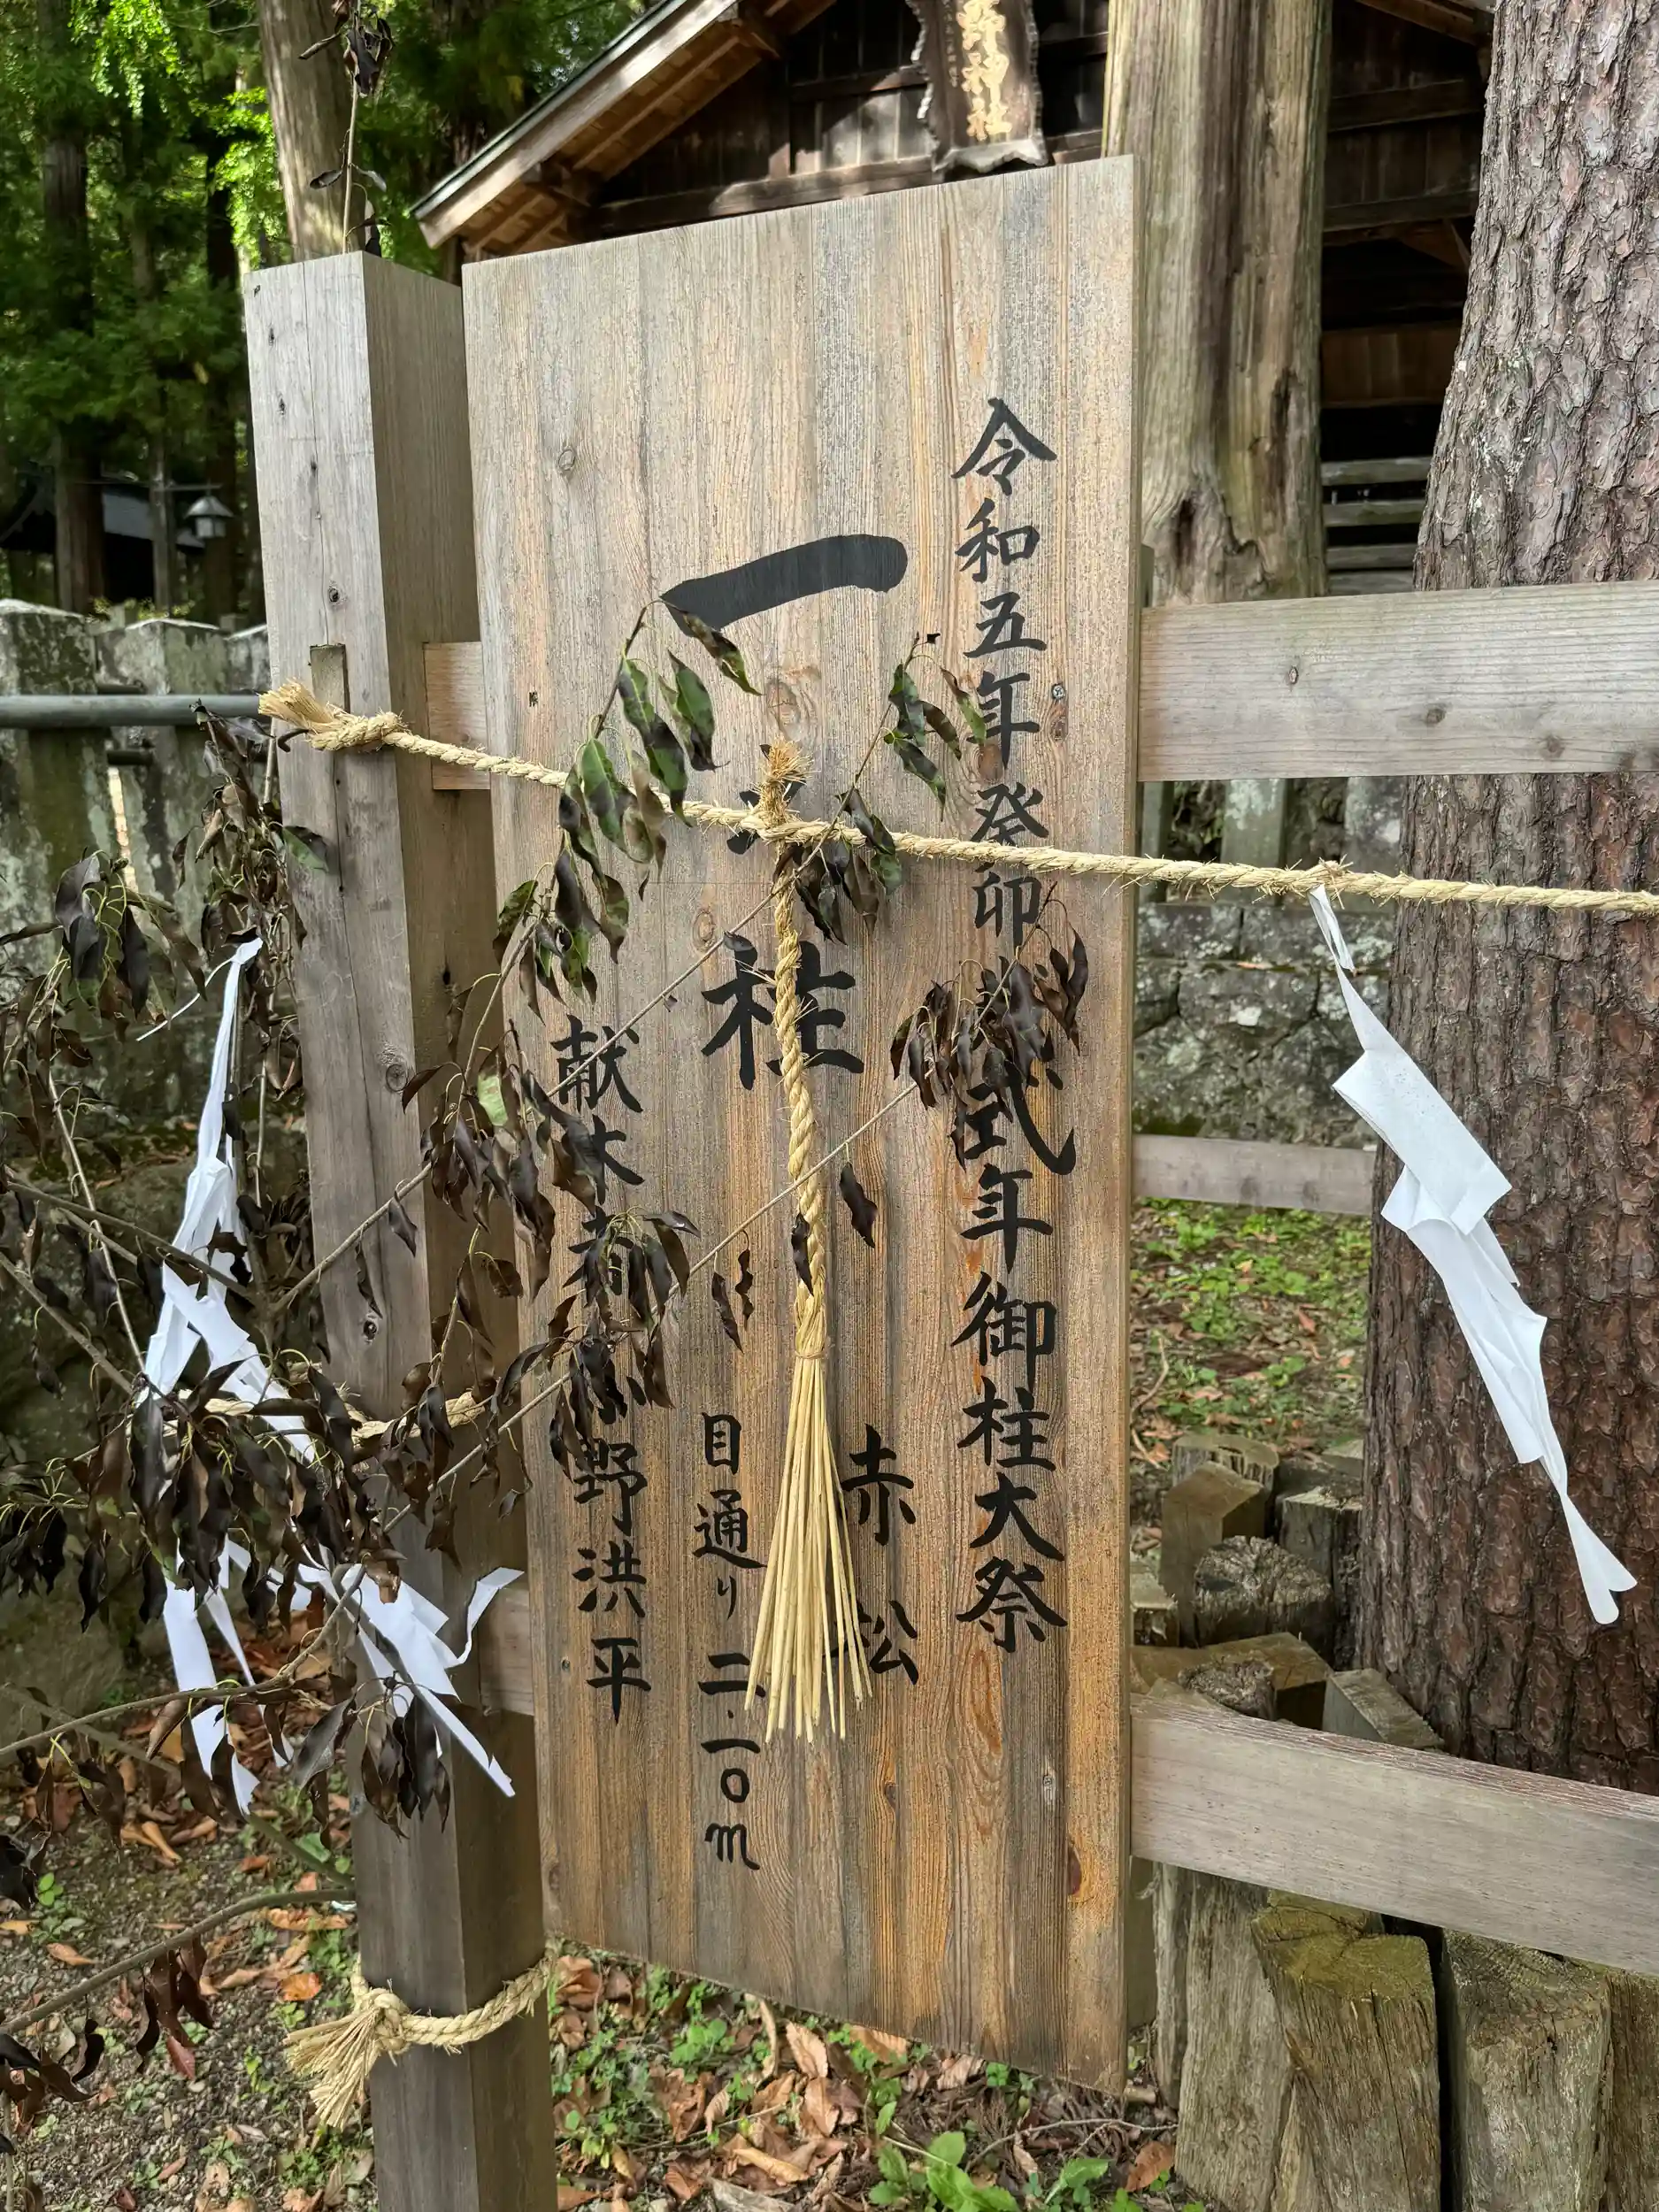 野神社
令和五年癸卯 式年御柱大祭
一之柱
赤松
目通り 二.一〇m
献木者 小野洪平